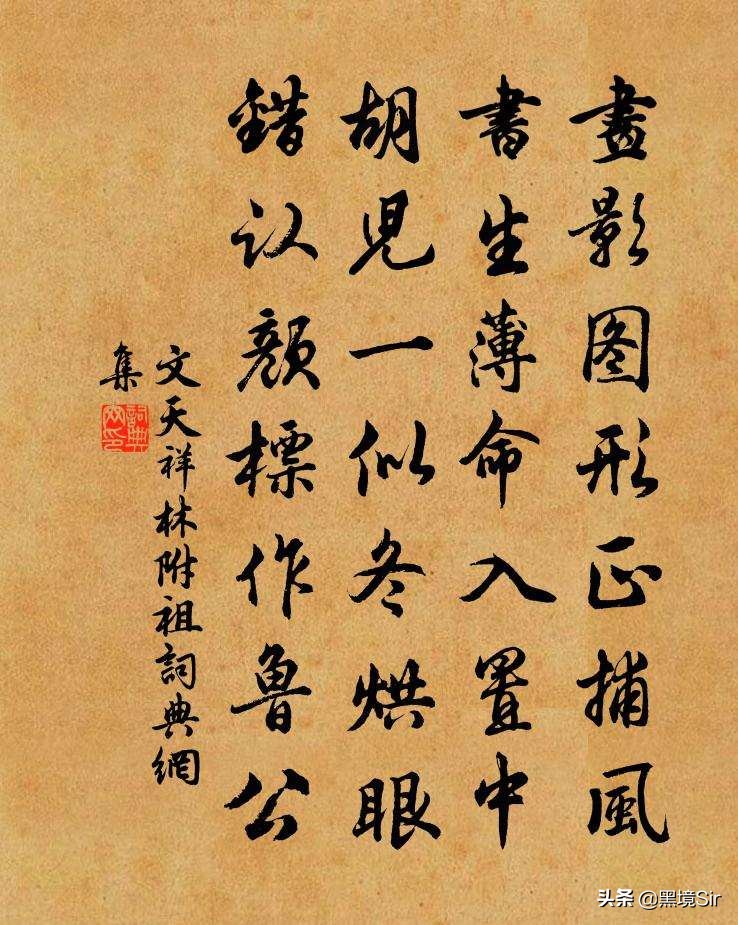 畫影图形正捕風
書生薄命入罝中
胡児一似冬烘眼
錯认顔標作魯公
文天祥林附祖詞典網
集
詞典網印
头条 @黑境Sir